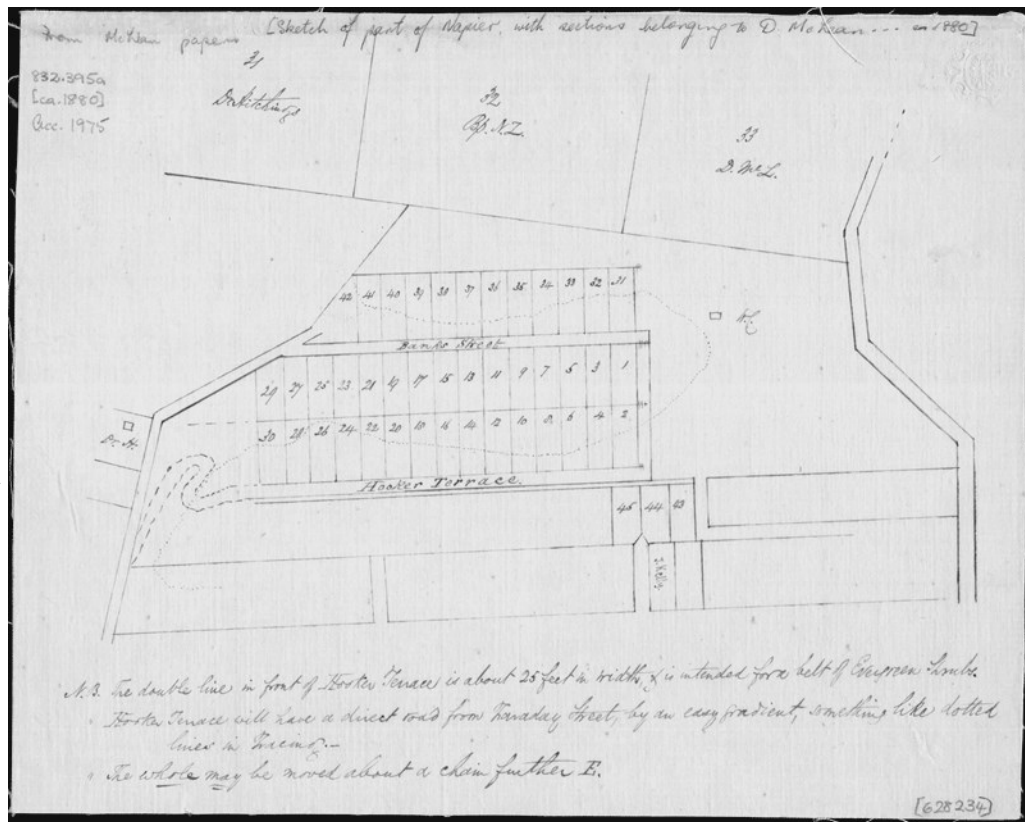 from McLean papers [Sketch of part of Napier, with sections belonging to D. McLean... ca 1880]
832.395a
[ca. 1880]
Acc. 1975
31
Dr Hitchings
32
Bp. N.Z.
33
D. McL.
42 41 40 39 38 37 36 35 34 33 32 31
Banks Street
29 27 25 23 21 19 17 15 13 11 9 7 5 3 1
30 28 26 24 22 20 10 16 14 12 10 8 6 4 2
Dr. H.
Hooker Terrace.
45 44 43
N.B. The double line in front of Hooker Terrace is about 25 feet in width, & is intended for a belt of Evergreen Shrubs.
" Hooker Terrace will have a direct road from Faraday Street, by an easy gradient, something like dotted
lines in Tracing.—
" The whole may be moved about a chain further E.
[628234]